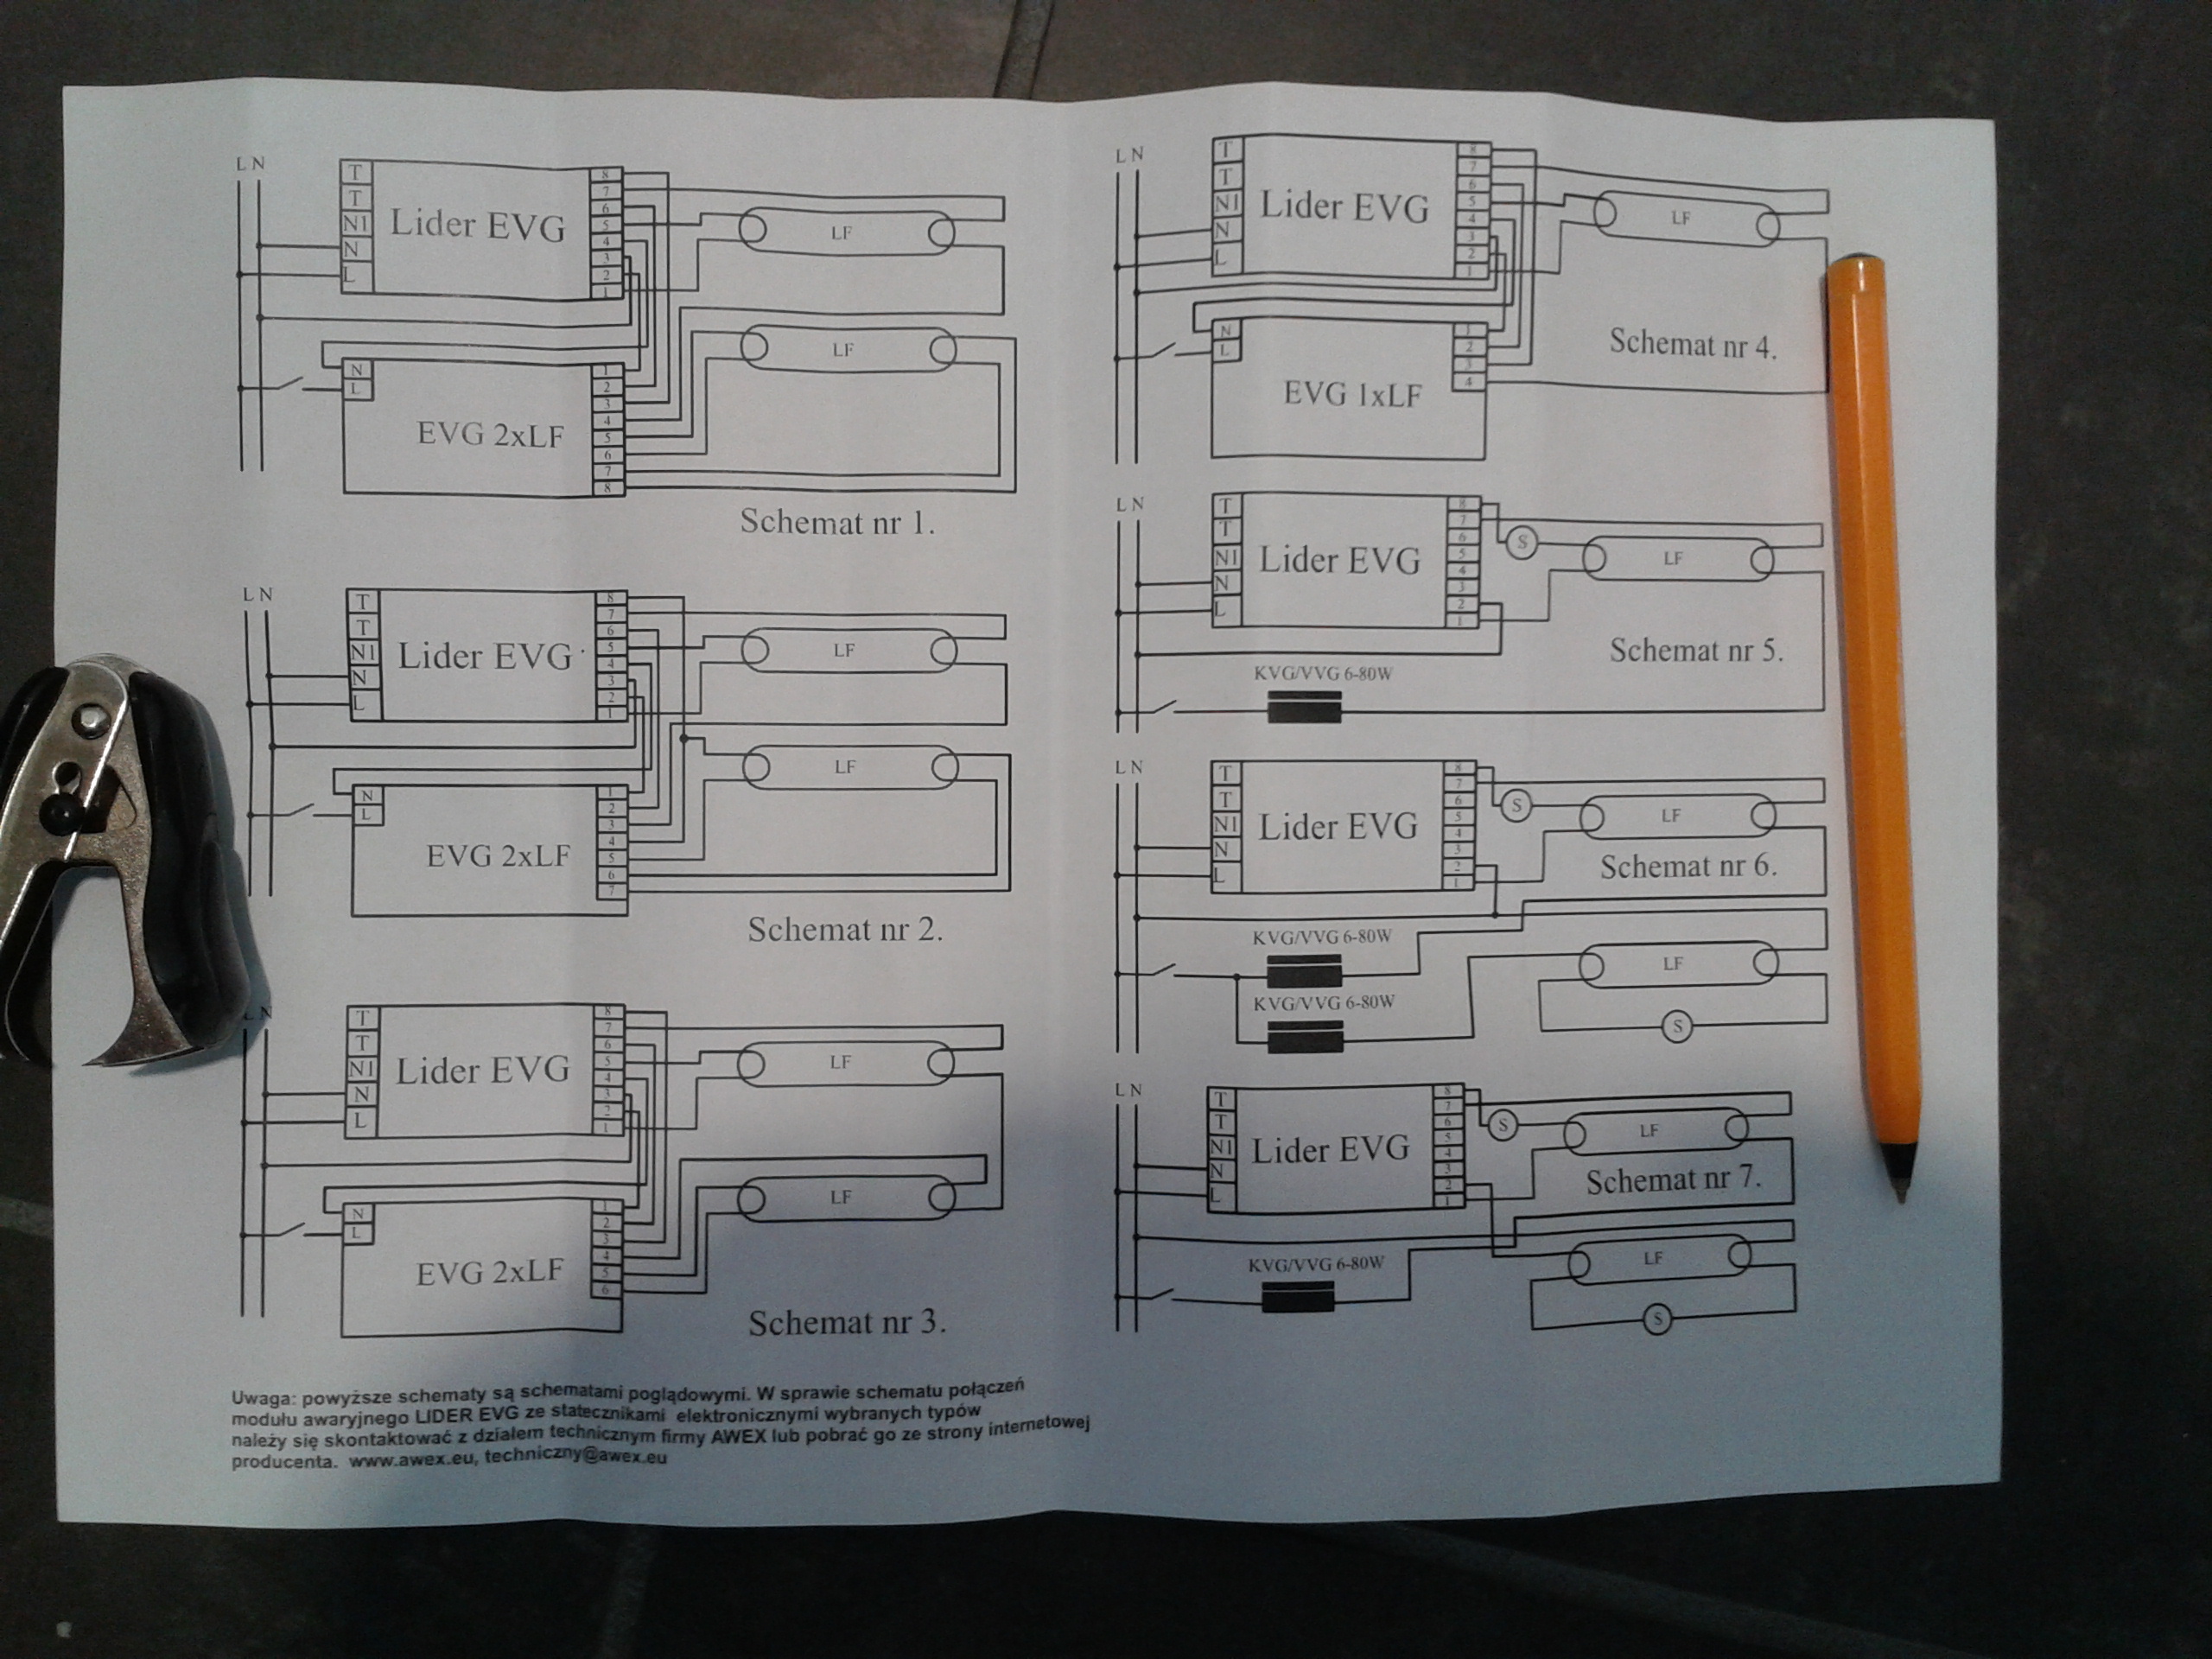 L N
T
T
N1
N
L
Lider EVG
8
7
6
5
4
3
2
1
LF
LF
N
L
EVG 2xLF
1
2
3
4
5
6
7
8
Schemat nr 1.
L N
T
T
N1
N
L
Lider EVG
8
7
6
5
4
3
2
1
LF
LF
N
L
EVG 2xLF
1
2
3
4
5
6
7
Schemat nr 2.
L N
T
T
N1
N
L
Lider EVG
8
7
6
5
4
3
2
1
LF
LF
N
L
EVG 2xLF
1
2
3
4
5
6
Schemat nr 3.
Uwaga: powyższe schematy są schematami poglądowymi. W sprawie schematu połączeń
modułu awaryjnego LIDER EVG ze statecznikami elektronicznymi wybranych typów
należy się skontaktować z działem technicznym firmy AWEX lub pobrać go ze strony internetowej
producenta. www.awex.eu, techniczny@awex.eu
L N
T
T
N1
N
L
Lider EVG
8
7
6
5
4
3
2
1
LF
N
L
EVG 1xLF
1
2
3
4
Schemat nr 4.
L N
T
T
N1
N
L
Lider EVG
8
7
6
5
4
3
2
1
S
LF
Schemat nr 5.
KVG/VVG 6-80W
L N
T
T
N1
N
L
Lider EVG
8
7
6
5
4
3
2
1
S
LF
Schemat nr 6.
KVG/VVG 6-80W
LF
KVG/VVG 6-80W
S
L N
T
T
N1
N
L
Lider EVG
8
7
6
5
4
3
2
1
S
LF
Schemat nr 7.
KVG/VVG 6-80W
LF
S